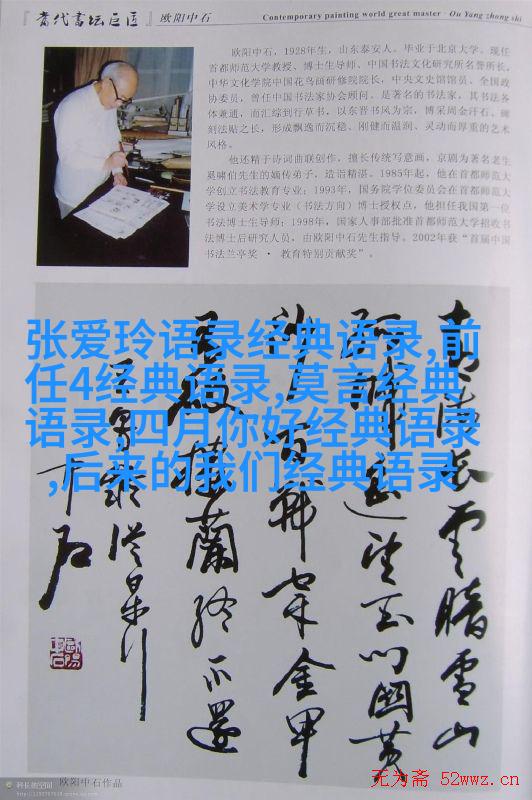 『当代书坛巨匠』欧阳中石
Contemporary painting world great master · Ou Yang zhong shi
欧阳中石，1928年生，山东泰安人。毕业于北京大学。现任
首都师范大学教授、博士生导师、中国书法文化研究所名誉所长，
中华文化学院中国花鸟画研修院院长，中央文史馆馆员、全国政
协委员，曾任中国书法家协会顾问。是著名的书法家，其书法各
体兼通，而汇综到行草书，以东晋书风为宗，博采周金汗石、碑
刻法贴之长，形成飘逸而沉稳、刚健而温润、灵动而厚重的艺术
风格。
他还精于诗词曲联创作，擅长传统写意画，京剧为著名老生
奚啸伯先生的嫡传弟子，造诣精湛。1985年起，他在首都师范大
学创立书法教育专业；1993年，国务院学位委员会在首都师范大
学设立美术学专业（书法方向）博士授权点，他担任我国第一位
书法博士生导师；1998年，国家人事部批准首都师范大学招收书
法博士后研究人员，由欧阳中石先生指导。2002年获“首届中国
书法兰亭奖 · 教育特别贡献奖”。
张爱玲语录经典语录,前
任4经典语录,莫言经典
语录,四月你好经典语录
,后来的我们经典语录
青海长云暗雪山
孤城遥望玉门关黄
沙百战穿金甲
不破楼兰终不还
王昌龄从军行
中石
欧阳中石作品
无为斋 52wwz.cn